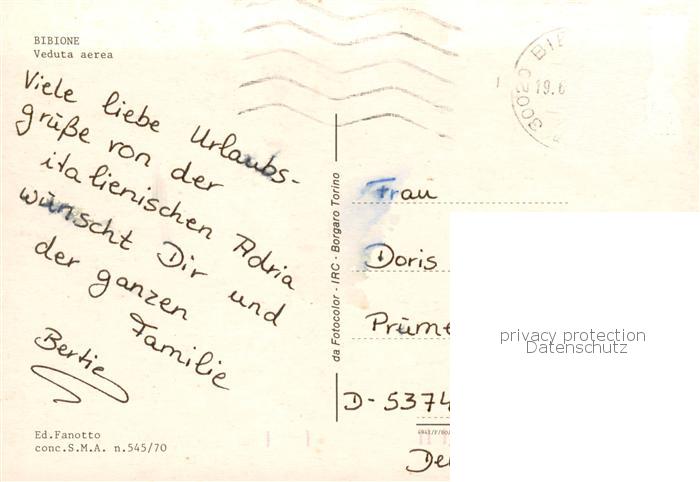 BIBIONE
Veduta aerea
Viele liebe Urlaubs-
grüße von der
italienischen Adria
wünscht Dir und
der ganzen
Familie
Bertie
Ed.Fanotto
conc.S.M.A. n.545/70
da Fotocolor - IRC - Borgaro Torino
30020 BIB
19.6
Frau
Doris
Prüme
D-5374
De
privacy protection
Datenschutz